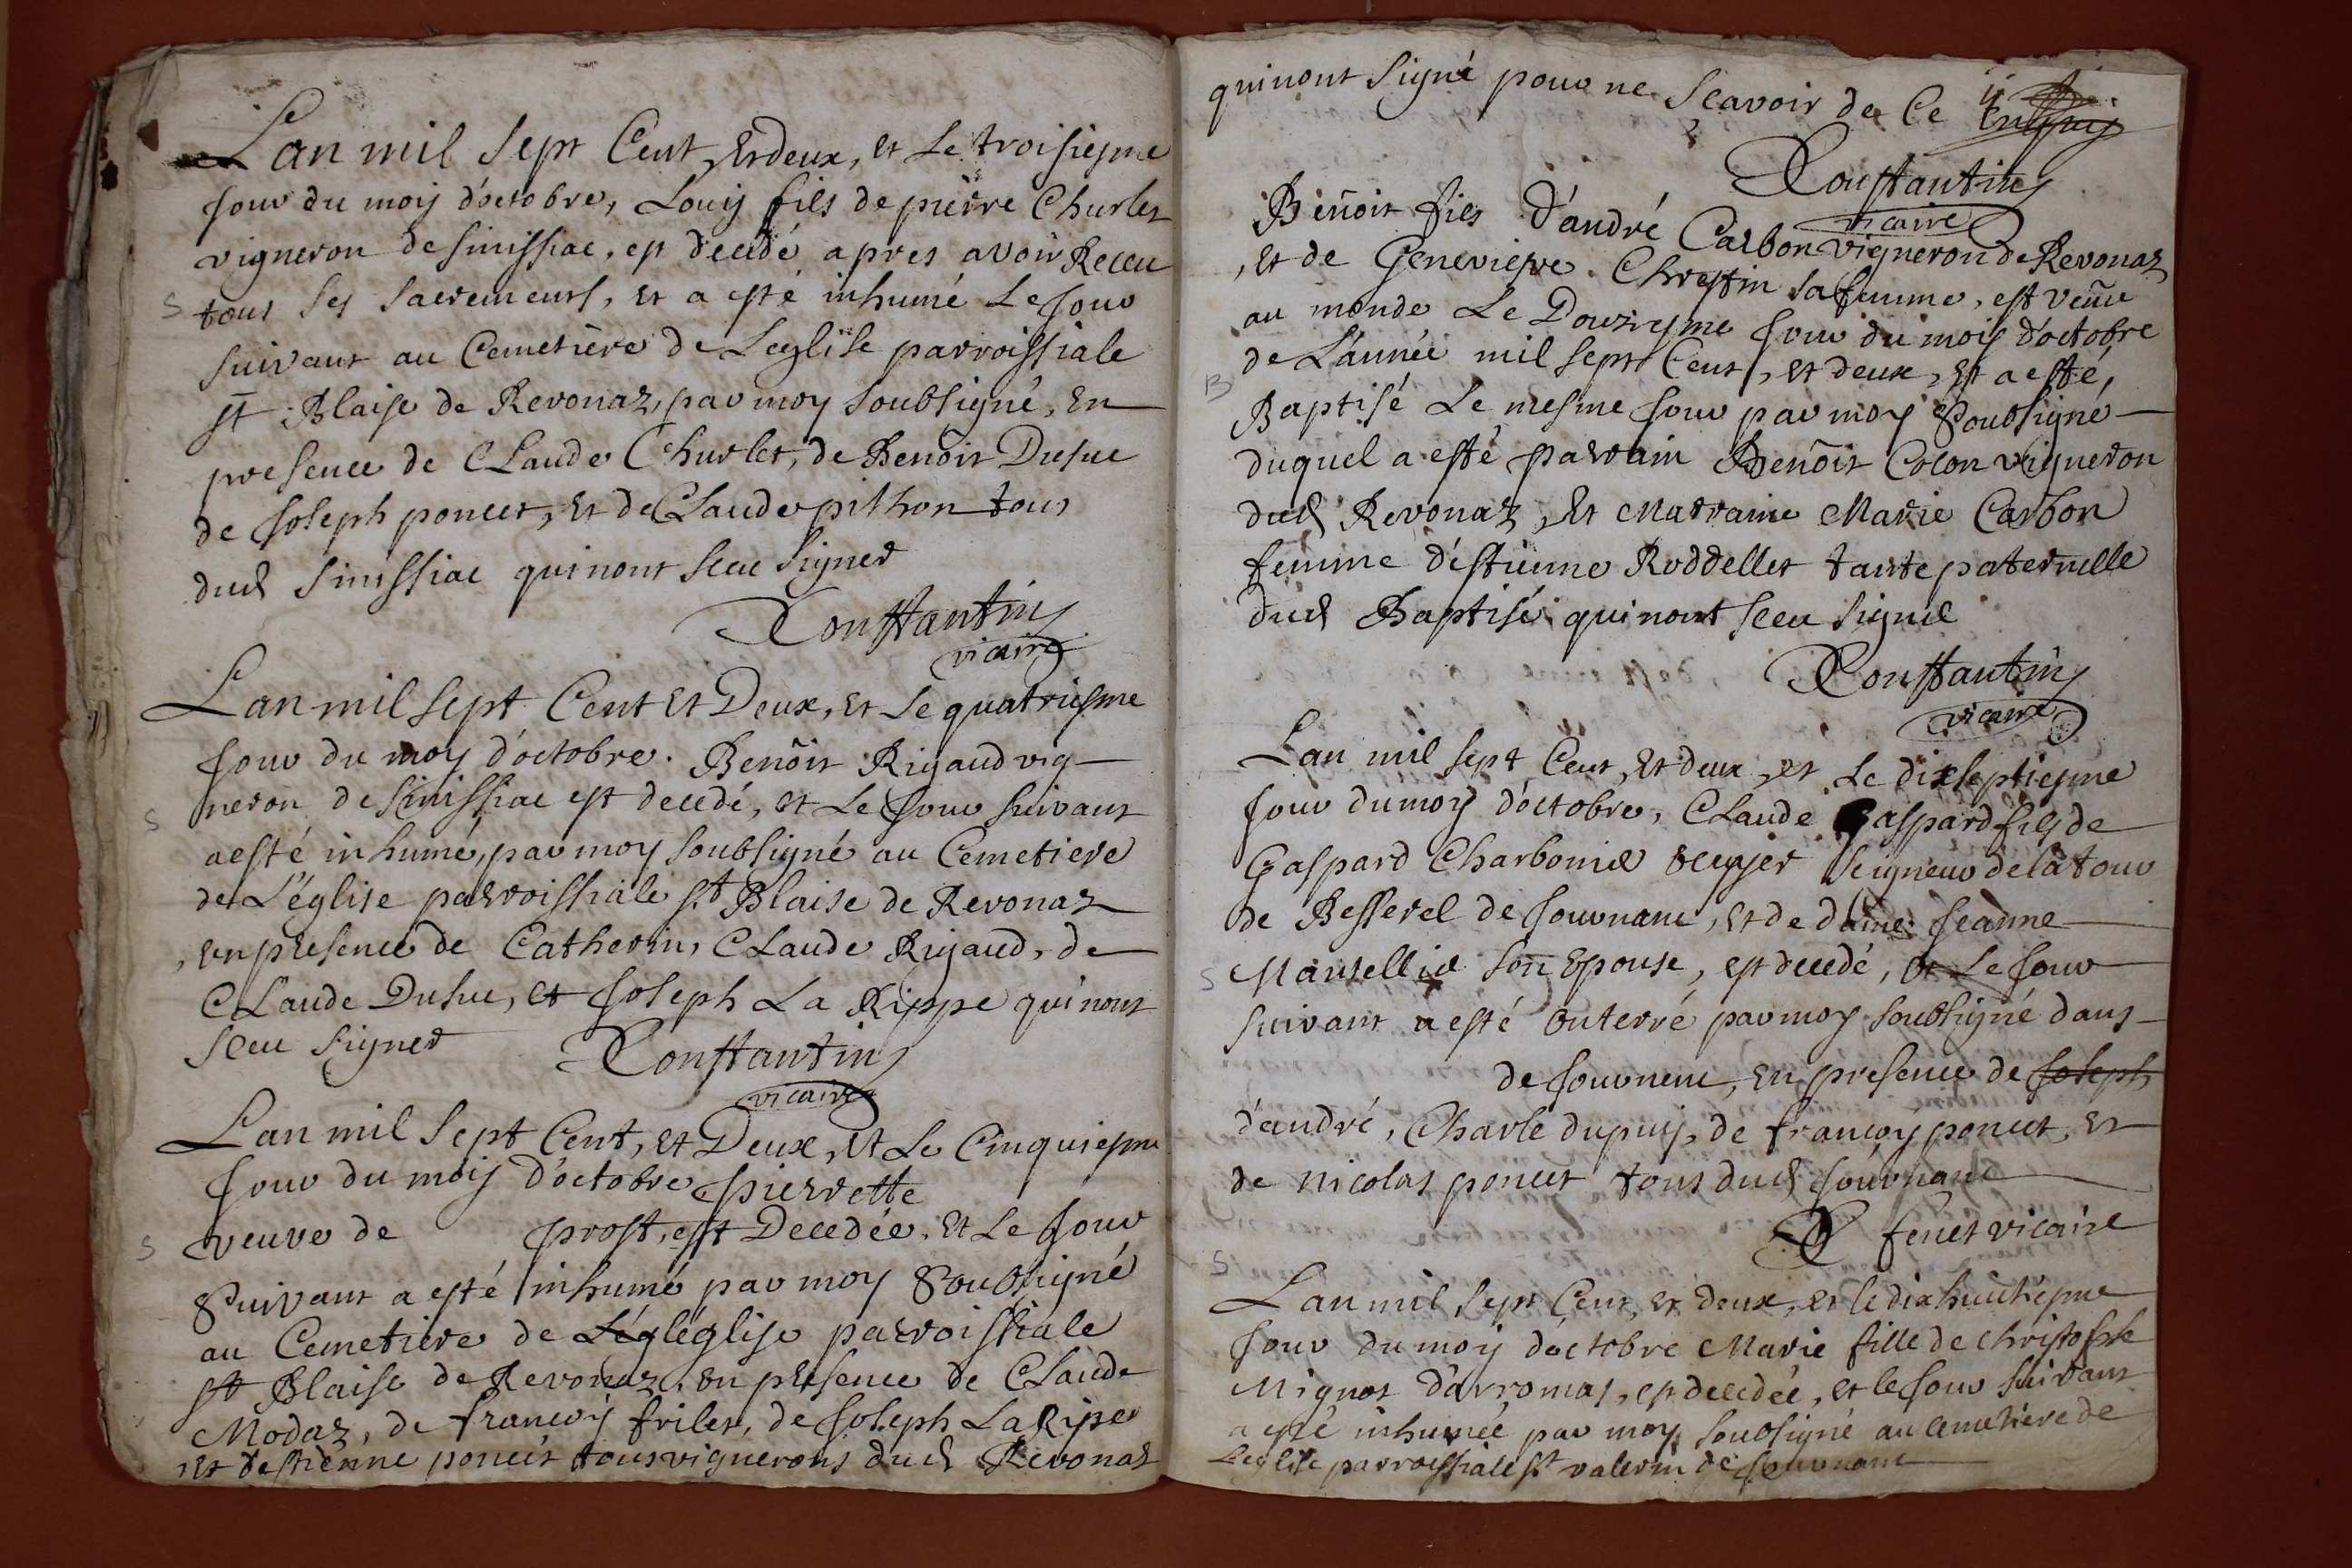 Lan mil sept Cent, Et deux, et Le troisiesme
Jour du moys d'octobre, Louys fils de pierre Churlet
vigneron de Sinissiac, est decedé apres avoir Receu
S
tous ses sacrements, et a esté inhumé Le Jour
suivant au Cemetière de Leglise parroissiale
St Blaise de Revonaz, par moy soubsigné, En
presence de CLaude Churlet, de Benoit Dusuc
de Joseph poncet, Et de CLaude pithon tous
dud Sinissiac qui nont sceu signer
Constantin
vicaire
Lan mil sept Cent et Deux, et Le quatriesme
Jour du moy d'octobre. Benoit Rigaud vig-
neron de Sinissiac est decedé, et Le Jour suivant
S
a esté inhumé, par moy soubsigné au Cemetiere
de L'église parroissiale St Blaise de Revonaz
, en presence de Catherin, CLaude Rigaud, de
CLaude Dusuc, et Joseph La Rippe qui nont
sceu signer
Constantin
vicaire
Lan mil sept Cent, et Deux, et Le Cinquiesme
Jour du moys d'octobre pierrette
S
veuve de prost, est Decedée, et Le Jour
suivant a esté inhumé par moy soubsigné
au Cemetiere de Légléglise parroissiale
St Blaise de Revonaz, en presence de CLaude
Modaz, de francoys frilet, de Joseph La Ripe
, et destienne poncet tous vignerons dud Revonaz
qui nont signé pour ne scavoir de Ce
Constantin
vicaire
Benoit fils d'andré Carbon vigneron de Revonaz
, et de Genevieve Chrestin sa femme, est venu
au monde Le Douziesme Jour du mois d'octobre
de L'année mil sept Cent, et deux, et a esté,
B
Baptisé Le mesme Jour par moy soubsigné
duquel a esté parrain Benoit Colon vigneron
dud Revonaz, Et Marraine Marie Carbon
femme d'estienne Roddellet tante paternelle
dud Baptisé qui nont sceu signé
Constantin
vicaire
Lan mil sept Cent, et deux, et Le dixseptiesme
Jour du moy d'octobre, CLaude Gaspard fils de
Gaspard Charbonie ecuyer seigneur de la tour
de Besserel de Journanc, et de dame Jeanne
S
son Epouse, est decedé, et Le Jour
suivant a esté enterré par moy soubsigné dans
de Journenc, en presence de Joseph
d'andré, Charle dupuy, de francoy poncet, et
de nicolas poncet tous dud Journanc
fenet vicaire
S
Lan mil sept Cent, et deux, et le dix huictiesme
Jour du moy doctobre Marie fille de christofle
Mignot d'arromas, est decedée, et le Jour suivant
a esté inhumée par moy soubsigné au cemetiere de
Leglise parroissiale St valerin de Journanc